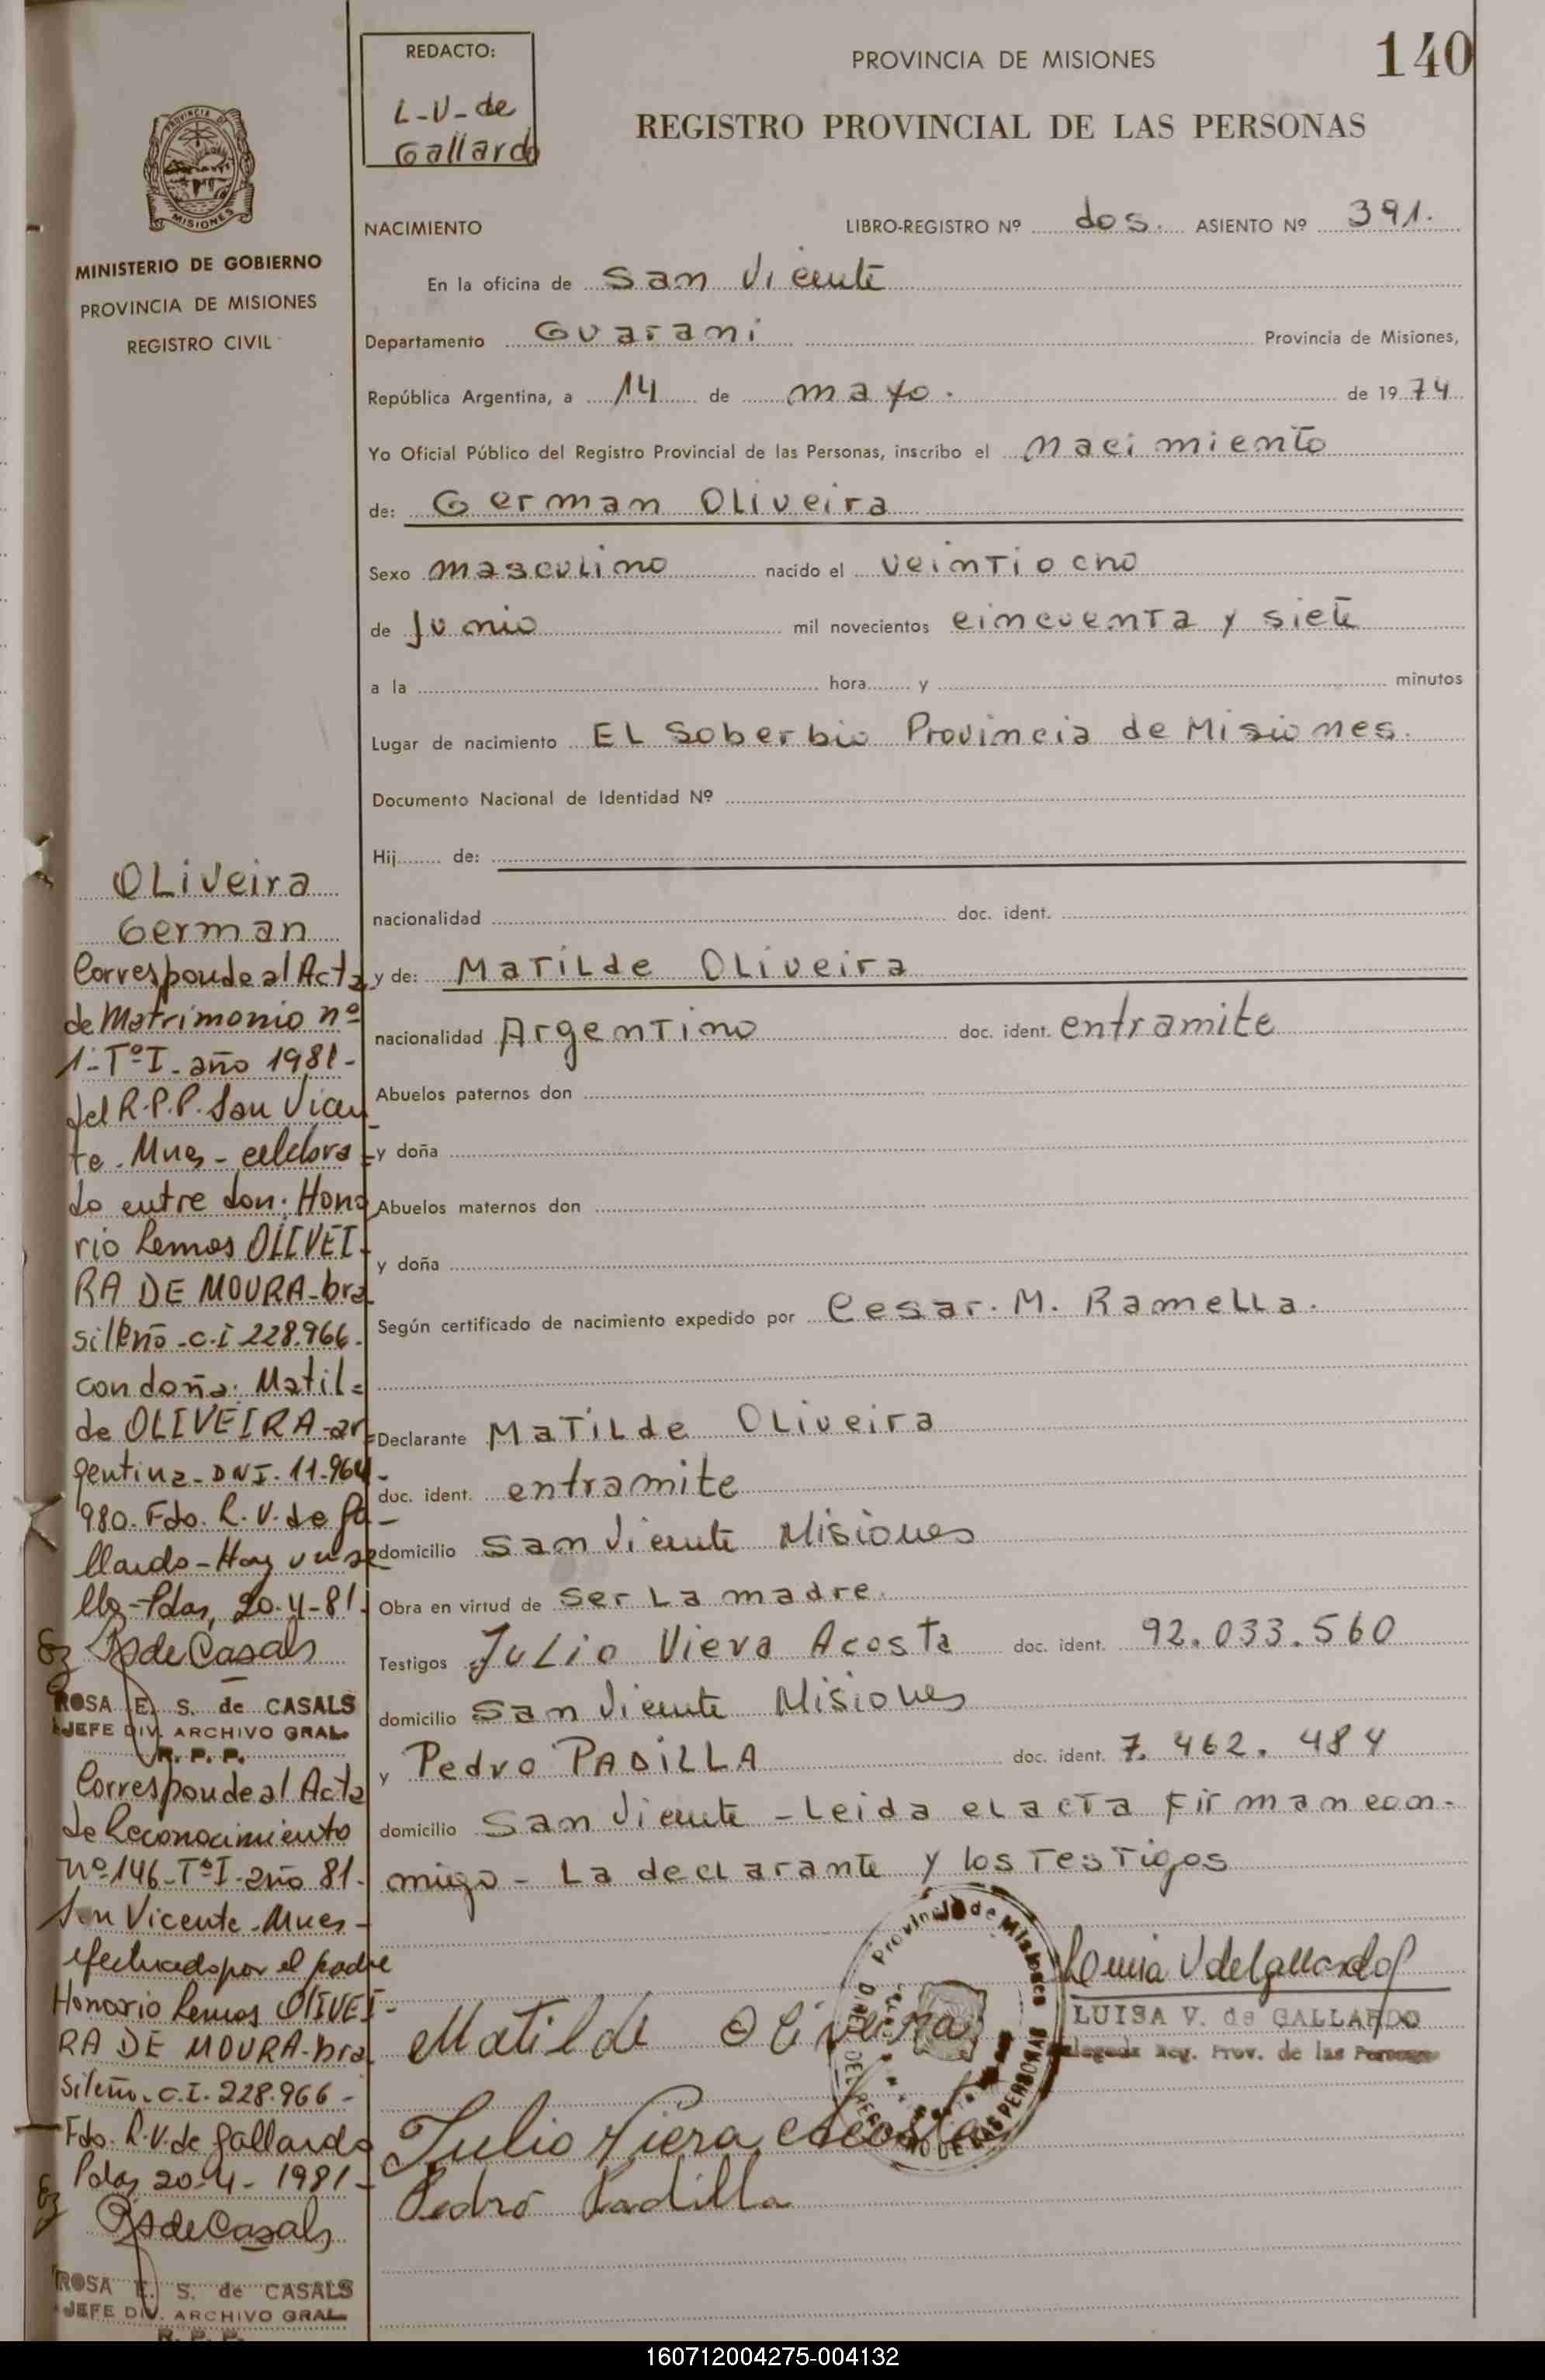 140
REDACTO:
L-V-de
Gallardo
PROVINCIA DE MISIONES
REGISTRO PROVINCIAL DE LAS PERSONAS
MISIONES
MINISTERIO DE GOBIERNO
PROVINCIA DE MISIONES
REGISTRO CIVIL
NACIMIENTO LIBRO-REGISTRO Nº dos. ASIENTO Nº 391.
En la oficina de San Vicente
Departamento Guarani Provincia de Misiones,
República Argentina, a 14 de mayo. de 1974
Yo Oficial Público del Registro Provincial de las Personas, inscribo el nacimiento
de: German Oliveira
Sexo masculino nacido el veintiocho
de Junio mil novecientos cincuenta y siete
a la hora y minutos
Lugar de nacimiento El Soberbio Provincia de Misiones.
Documento Nacional de Identidad Nº
Hij de:
nacionalidad doc. ident.
y de: Matilde Oliveira
nacionalidad Argentino doc. ident. entramite
Abuelos paternos don
y doña
Abuelos maternos don
y doña
Según certificado de nacimiento expedido por Cesar. M. Ramella.
Declarante Matilde Oliveira
doc. ident. entramite
domicilio San Vicente Misiones
Obra en virtud de ser La madre.
Testigos Julio Viera Acosta doc. ident. 92.033.560
domicilio San Vicente Misiones
y Pedro PADILLA doc. ident. 7.462.484
domicilio San Vicente - Leida el acta Firman con-
migo - La declarante y los Testigos
Matilde Oliveira
Julio Viera Acosta
Pedro Padilla
LUISA V. de GALLARDO
Reg. Prov. de las Personas
Oliveira
German
Corresponde al Acta
de Matrimonio nº
1-TºI-año 1981-
del R.P.P. San Vicen
te. Mnes- celebra=
do entre don: Hono
rio Lemos OLIVEI-
RA DE MOURA-bra
sileño-C.I 228.966.
con doña: Matil=
de OLIVEIRA-ar=
gentina-DNI-11-964-
980. Fdo. L.V. de Ga-
llardo-Hay un se
llo-Pdas, 20-4-81.
RSdeCasals
ROSA E. S. de CASALS
JEFE DIV. ARCHIVO GRAL.
R. P. P.
Corresponde al Acta
de Reconocimiento
Nº 146-TºI-año 81.
San Vicente-Mnes-
efectuado por el padre
Honorio Lemos OLIVEI-
RA DE MOURA-bra
sileño. C.I. 228.966-
Fdo. L.V. de Gallardo
Pdas 20-4-1981-
RSdeCasals
ROSA E. S. de CASALS
JEFE DIV. ARCHIVO GRAL.
R. P. P.
160712004275-004132